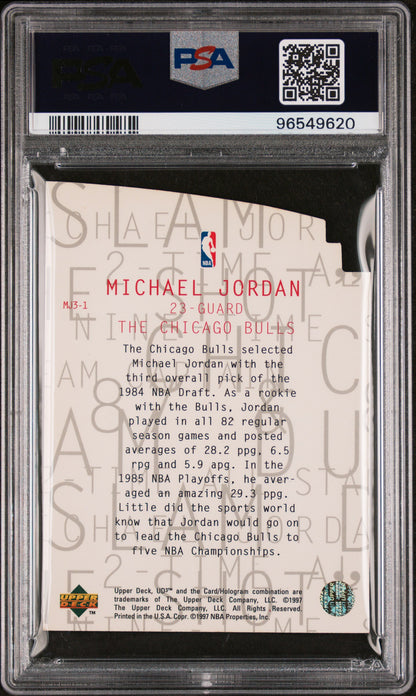 PSA
PSA
96549620
NBA
MICHAEL JORDAN
MJ3-1
23-GUARD
THE CHICAGO BULLS
The Chicago Bulls selected
Michael Jordan with the
third overall pick of the
1984 NBA Draft. As a rookie
with the Bulls, Jordan
played in all 82 regular
season games and posted
averages of 28.2 ppg, 6.5
rpg and 5.9 apg. In the
1985 NBA Playoffs, he aver-
aged an amazing 29.3 ppg.
Little did the sports world
know that Jordan would go on
to lead the Chicago Bulls to
five NBA Championships.
UPPER
DECK
TM
Upper Deck, UD3™ and the Card/Hologram combination are
trademarks of The Upper Deck Company, LLC. ©1997
The Upper Deck Company, LLC. All Rights Reserved.
Printed in the U.S.A. Copr. ©1997 NBA Properties, Inc.